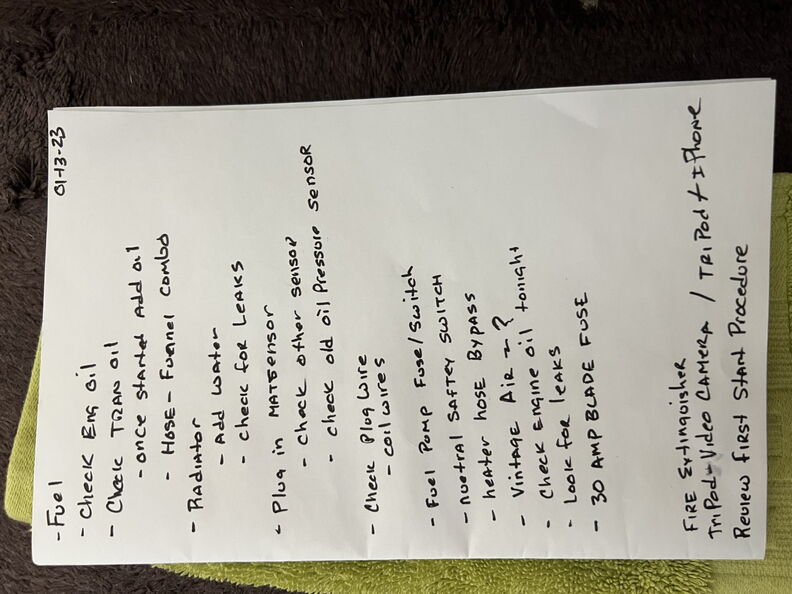 01-13-23
- Fuel
- Check Eng oil
- Check TRAN oil
- once started Add oil
- Hose - Funnel combo
- Radiator
- Add water
- check for LEAKS
- Plug in MATSensor
- Check other sensor
- check old oil Pressure sensor
- Check Plug wire
- coil wires
- Fuel Pump Fuse/switch
- nuetral SAFTEY SWITCH
- heater hose BYPASS
- Vintage Air - ?
- Check Engine oil tonight
- Look for leaks
- 30 AMP BLADE FUSE
FIRE Extinguisher
TriPod - Video CAMERA / TRiPod + IPhone
Review First Start Procedure